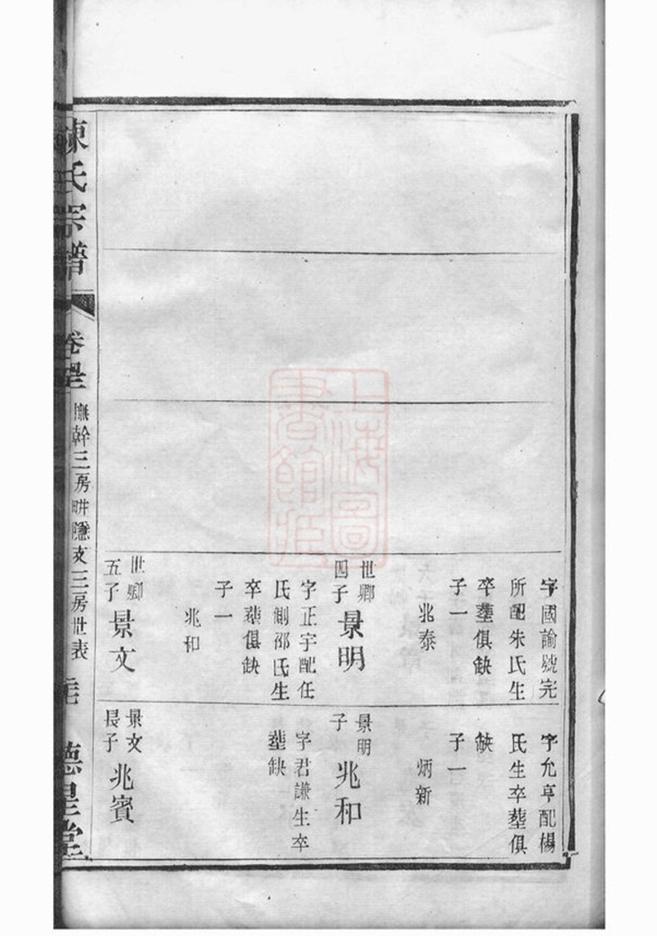 字國諭號完
所配朱氏生
卒塟俱缺
子一
兆泰
世卿
四子
景明
字正宇配任
氏側邵氏生
卒塟俱缺
子一
兆和
世卿
五子
景文
字允亨配楊
氏生卒塟俱
缺
子一
炳新
景明
子
兆和
字君謙生卒
塟缺
景文
長子
兆賓
陳氏宗譜
撫幹三房畊隱支三房世表
德星堂
上海圖
書館藏